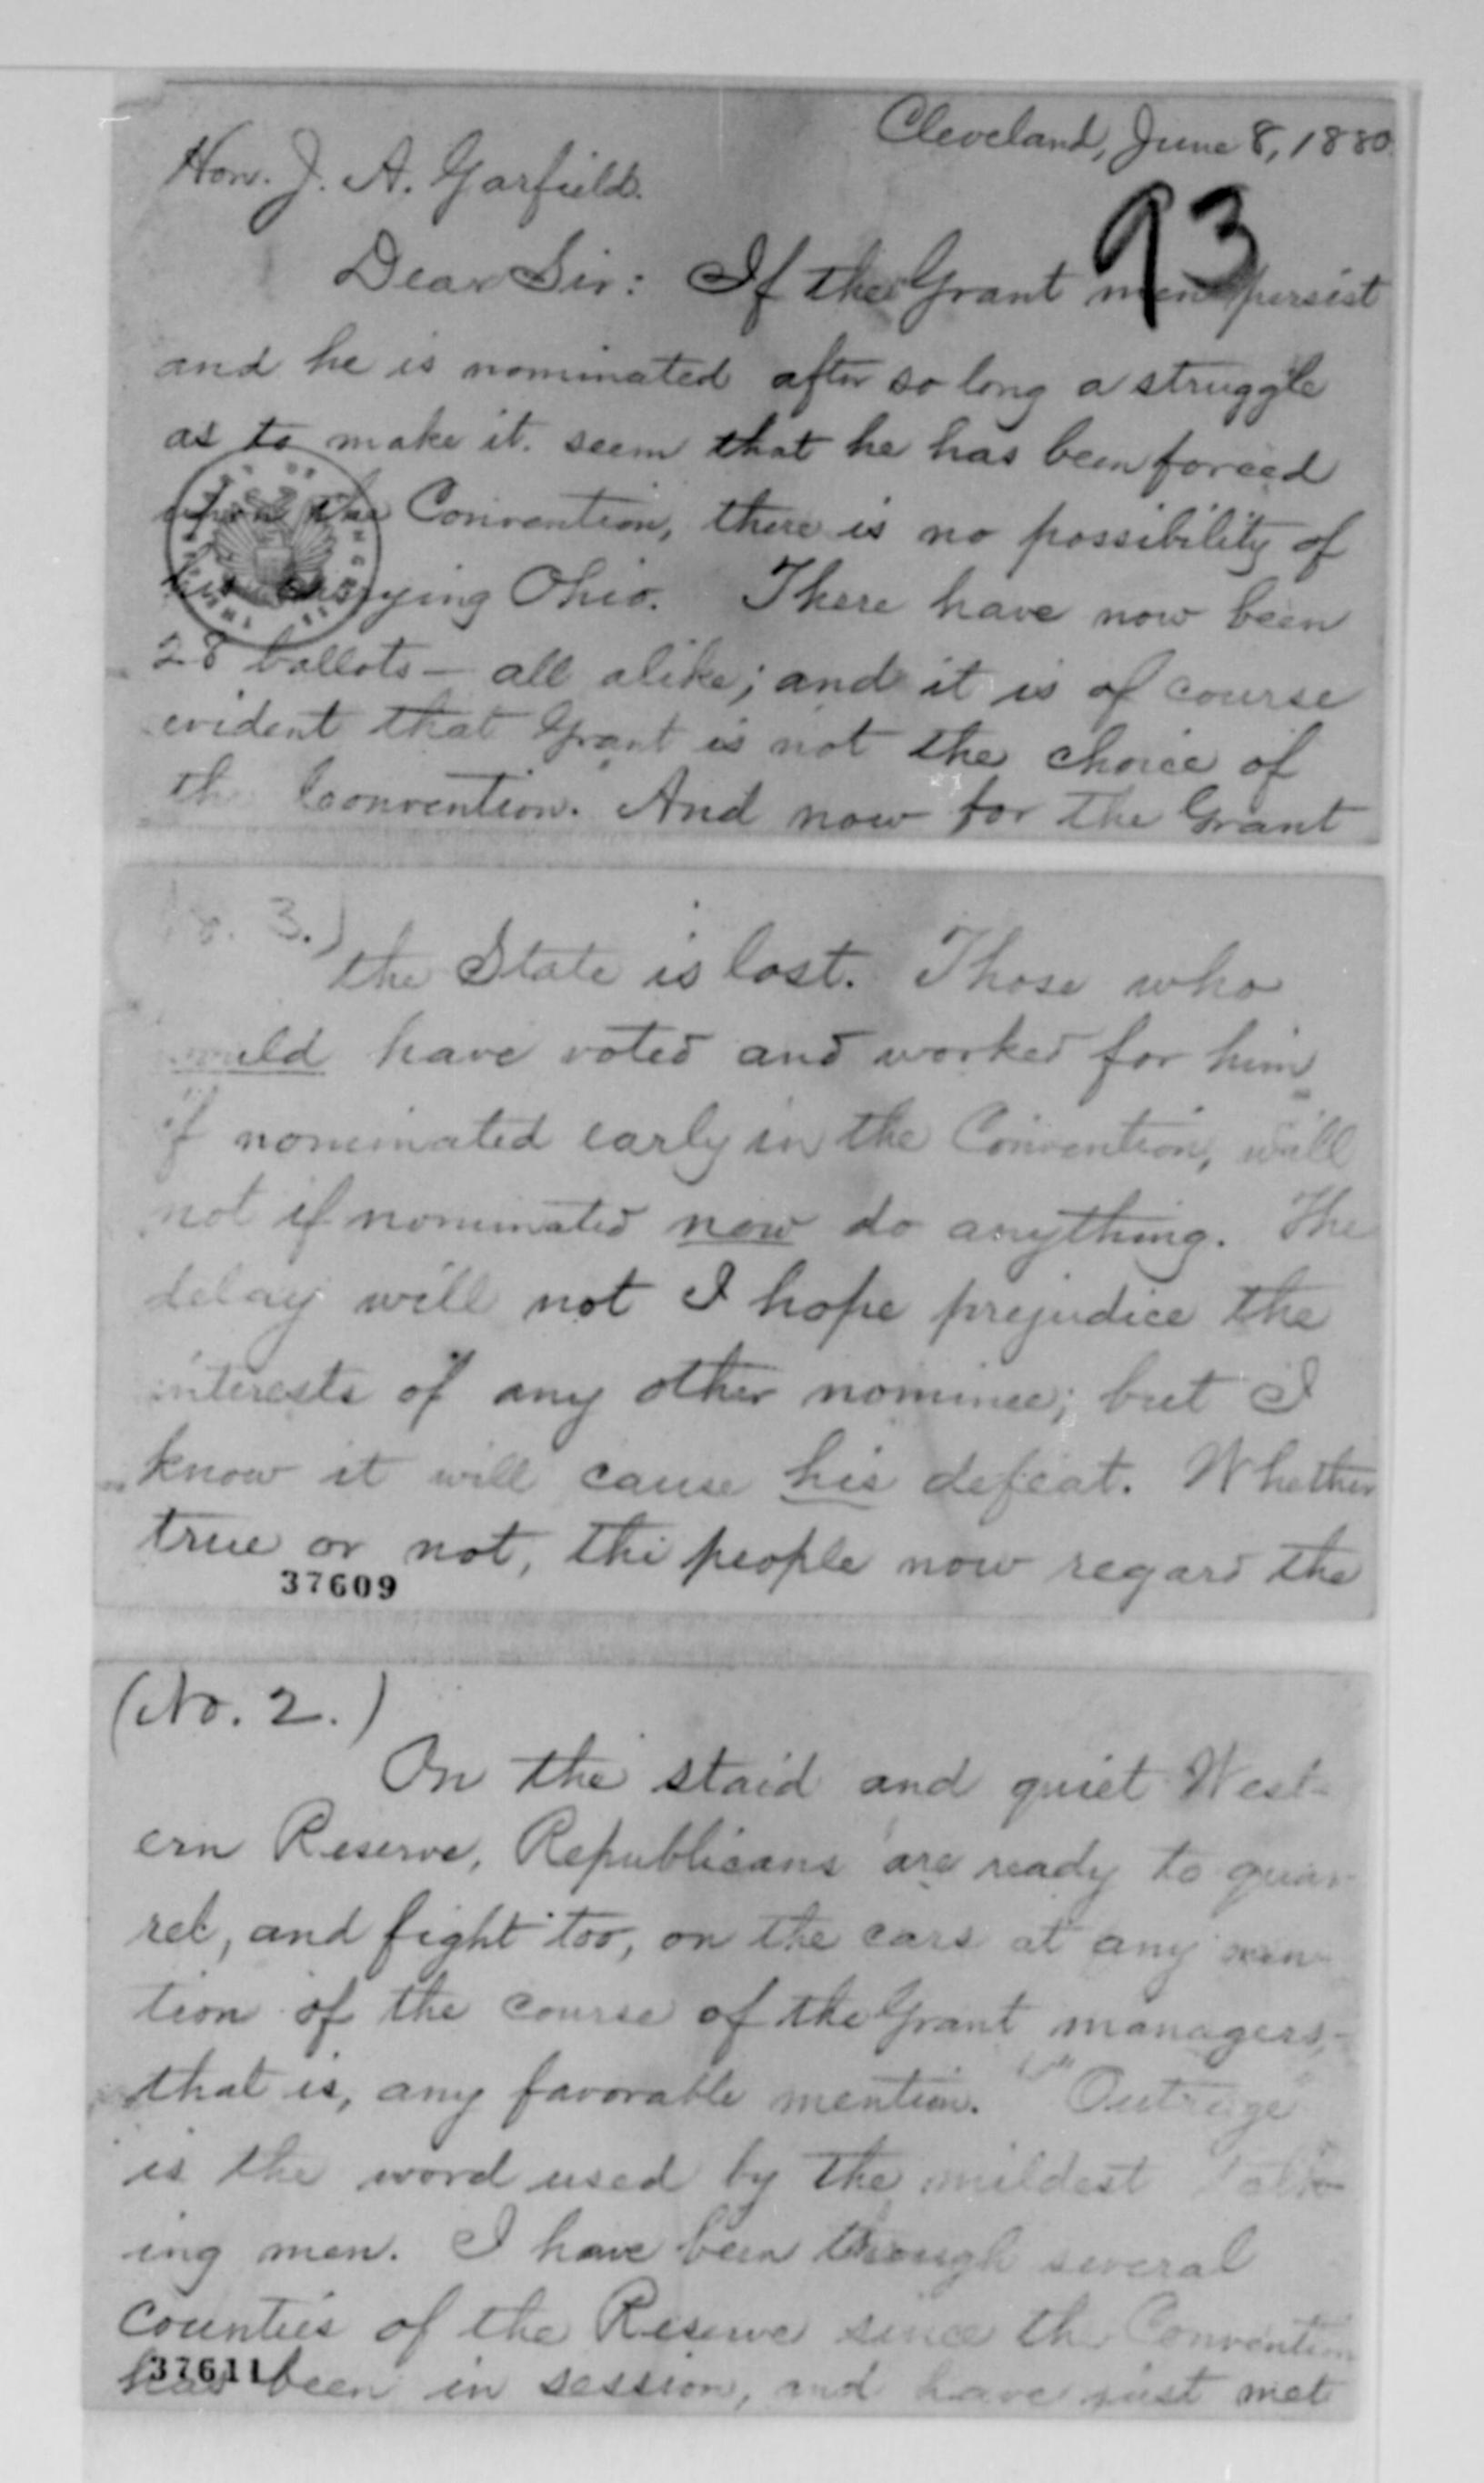 Cleveland, June 8, 1880.
Hon. J. A. Garfield.
93
Dear Sir: If the Grant men persist
and he is nominated after so long a struggle
as to make it seem that he has been forced
upon the Convention, there is no possibility of
his carrying Ohio. There have now been
28 ballots – all alike; and it is of course
evident that Grant is not the choice of
the Convention. And now for the Grant
3.)
the State is lost. Those who
would have voted and worked for him
if nominated early in the Convention, will
not if nominated now do anything. The
delay will not I hope prejudice the
interests of any other nominee; but I
know it will cause his defeat. Whether
true or not, the people now regard the
37609
(No. 2.)
On the staid and quiet West-
ern Reserve, Republicans are ready to quar-
rel, and fight too, on the cars at any men-
tion of the course of the Grant managers,-
that is, any favorable mention. "Outrage"
is the word used by the mildest talk-
ing men. I have been through several
counties of the Reserve since the Convention
has been in session, and have just met
37611